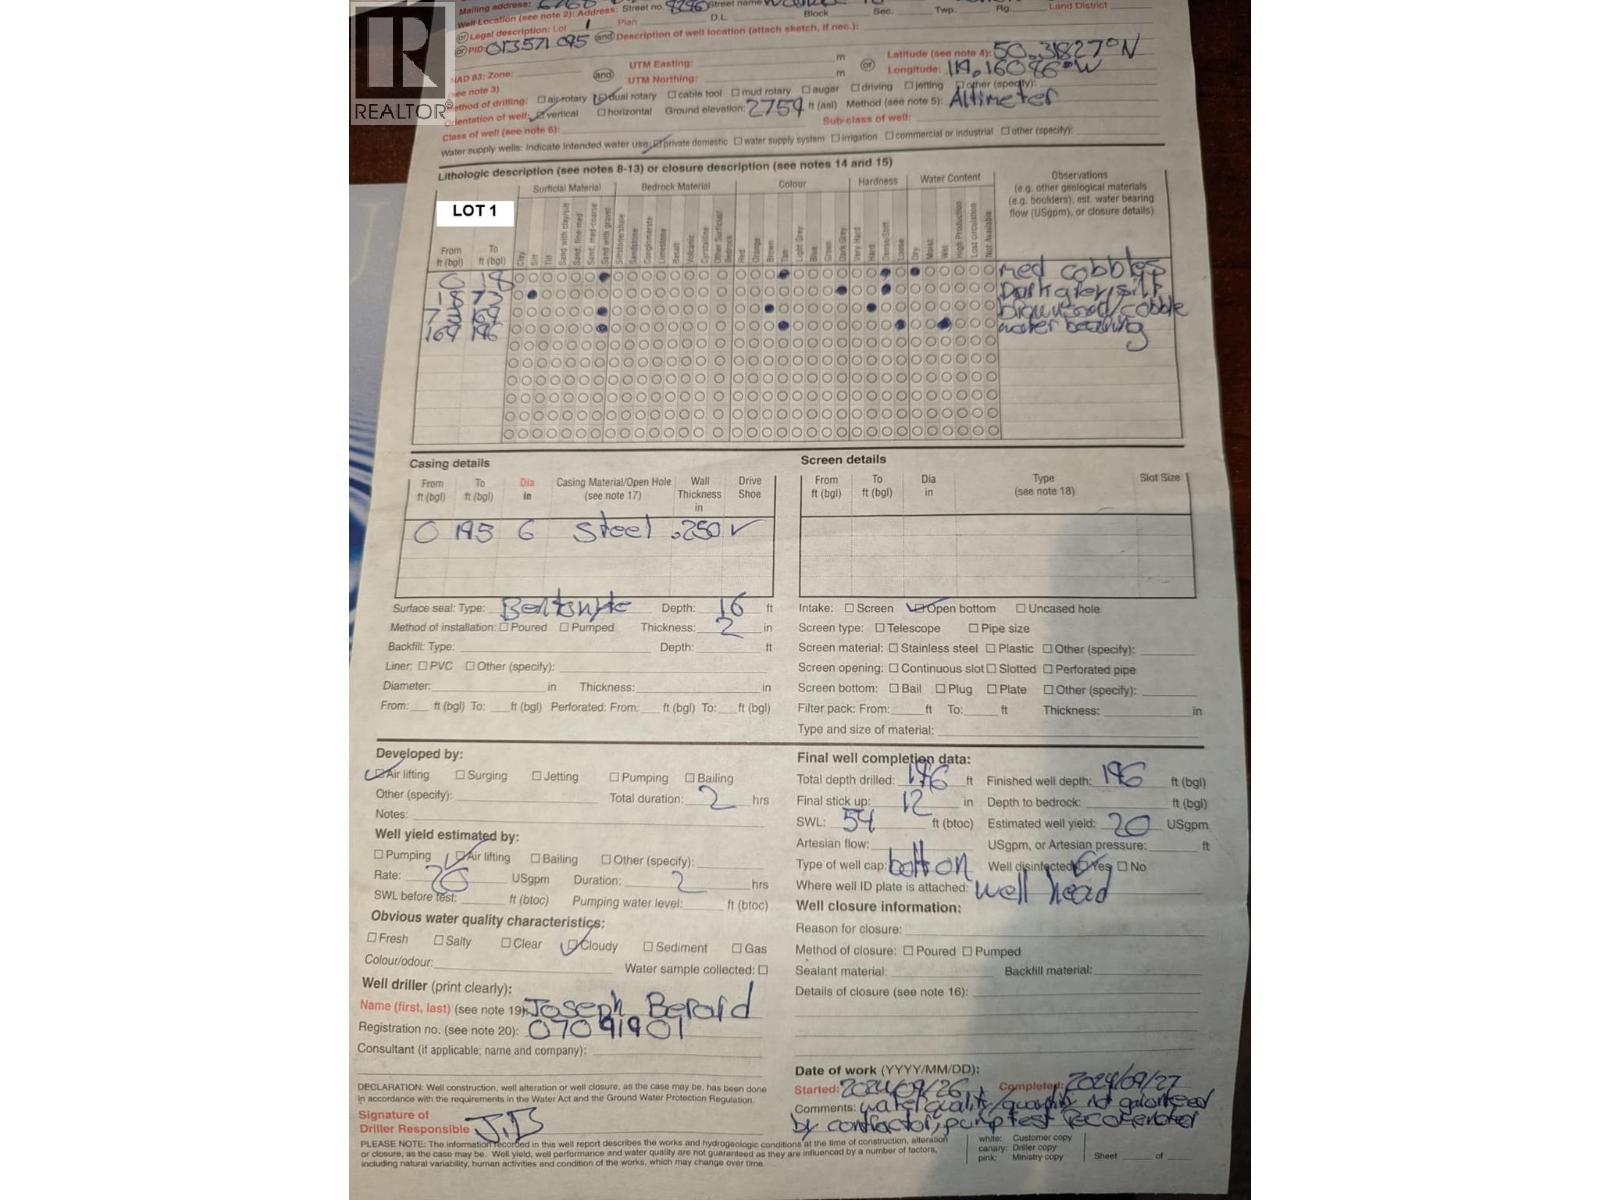 Mailing address:
Well Location (see note 2): Address: Street no. 8296 Street name
or Legal description: Lot 1 Plan D.L. Block Sec. Twp. Rg. Land District
or PID: 013571095 and Description of well location (attach sketch, if nec.):
NAD 83: Zone: and UTM Easting: m or Latitude (see note 4): 50.31827°N
(see note 3) UTM Northing: m Longitude: 119.16086°W
Method of drilling: ☐ air rotary ☑ dual rotary ☐ cable tool ☐ mud rotary ☐ auger ☐ driving ☐ jetting ☐ other (specify):
Orientation of well: ☑ vertical ☐ horizontal Ground elevation: 2759 ft (asl) Method (see note 5): Altimeter
Class of well (see note 6): Sub-class of well:
Water supply wells: Indicate intended water use: ☑ private domestic ☐ water supply system ☐ irrigation ☐ commercial or industrial ☐ other (specify):
REALTOR®
Lithologic description (see notes 8-13) or closure description (see notes 14 and 15)
Surficial Material Bedrock Material Colour Hardness Water Content Observations
(e.g. other geological materials
(e.g. boulders), est. water bearing
flow (USgpm), or closure details)
LOT 1
From ft (bgl) To ft (bgl) Clay Silt Till Sand with clay/silt Sand, fine-med Sand, med-coarse Sand with gravel Siltstone/shale Sandstone Conglomerate Limestone Basalt Volcanic Crystalline Other Surficial/Bedrock Red Orange Brown Tan Light Grey Blue Green Dark Grey Very Hard Hard Dense/Stiff Loose Dry Moist Wet High Production Lost circulation Not Available
0 18 med cobbles
18 73 Dark grey silt
73 169 brown sand/cobble
169 196 water bearing
Casing details
From ft (bgl) To ft (bgl) Dia in Casing Material/Open Hole (see note 17) Wall Thickness in Drive Shoe
0 195 6 Steel .250 ✓
Screen details
From ft (bgl) To ft (bgl) Dia in Type (see note 18) Slot Size
Surface seal: Type: Bentonyte Depth: 16 ft
Method of installation: ☐ Poured ☐ Pumped Thickness: 2 in
Backfill: Type: Depth: ft
Liner: ☐ PVC ☐ Other (specify):
Diameter: in Thickness: in
From: ft (bgl) To: ft (bgl) Perforated: From: ft (bgl) To: ft (bgl)
Intake: ☐ Screen ☑ Open bottom ☐ Uncased hole
Screen type: ☐ Telescope ☐ Pipe size
Screen material: ☐ Stainless steel ☐ Plastic ☐ Other (specify):
Screen opening: ☐ Continuous slot ☐ Slotted ☐ Perforated pipe
Screen bottom: ☐ Bail ☐ Plug ☐ Plate ☐ Other (specify):
Filter pack: From: ft To: ft Thickness: in
Type and size of material:
Developed by:
☑ Air lifting ☐ Surging ☐ Jetting ☐ Pumping ☐ Bailing
Other (specify): Total duration: 2 hrs
Notes:
Well yield estimated by:
☐ Pumping ☑ Air lifting ☐ Bailing ☐ Other (specify):
Rate: 20 USgpm Duration: 2 hrs
SWL before test: ft (btoc) Pumping water level: ft (btoc)
Obvious water quality characteristics:
☐ Fresh ☐ Salty ☐ Clear ☑ Cloudy ☐ Sediment ☐ Gas
Colour/odour: Water sample collected: ☐
Well driller (print clearly):
Name (first, last) (see note 19): Joseph Berard
Registration no. (see note 20): 07091901
Consultant (if applicable; name and company):
DECLARATION: Well construction, well alteration or well closure, as the case may be, has been done
in accordance with the requirements in the Water Act and the Ground Water Protection Regulation.
Signature of
Driller Responsible J.B
Final well completion data:
Total depth drilled: 196 ft Finished well depth: 196 ft (bgl)
Final stick up: 12 in Depth to bedrock: ft (bgl)
SWL: 54 ft (btoc) Estimated well yield: 20 USgpm
Artesian flow: USgpm, or Artesian pressure: ft
Type of well cap: bolt on Well disinfected: ☑ Yes ☐ No
Where well ID plate is attached: well head
Well closure information:
Reason for closure:
Method of closure: ☐ Poured ☐ Pumped
Sealant material: Backfill material:
Details of closure (see note 16):
Date of work (YYYY/MM/DD):
Started: 2024/09/26 Completed: 2024/09/27
Comments: water quality/quantity not guaranteed
by contractor, pump test recomended
PLEASE NOTE: The information recorded in this well report describes the works and hydrogeologic conditions at the time of construction, alteration
or closure, as the case may be. Well yield, well performance and water quality are not guaranteed as they are influenced by a number of factors,
including natural variability, human activities and condition of the works, which may change over time.
white: Customer copy
canary: Driller copy
pink: Ministry copy
Sheet of